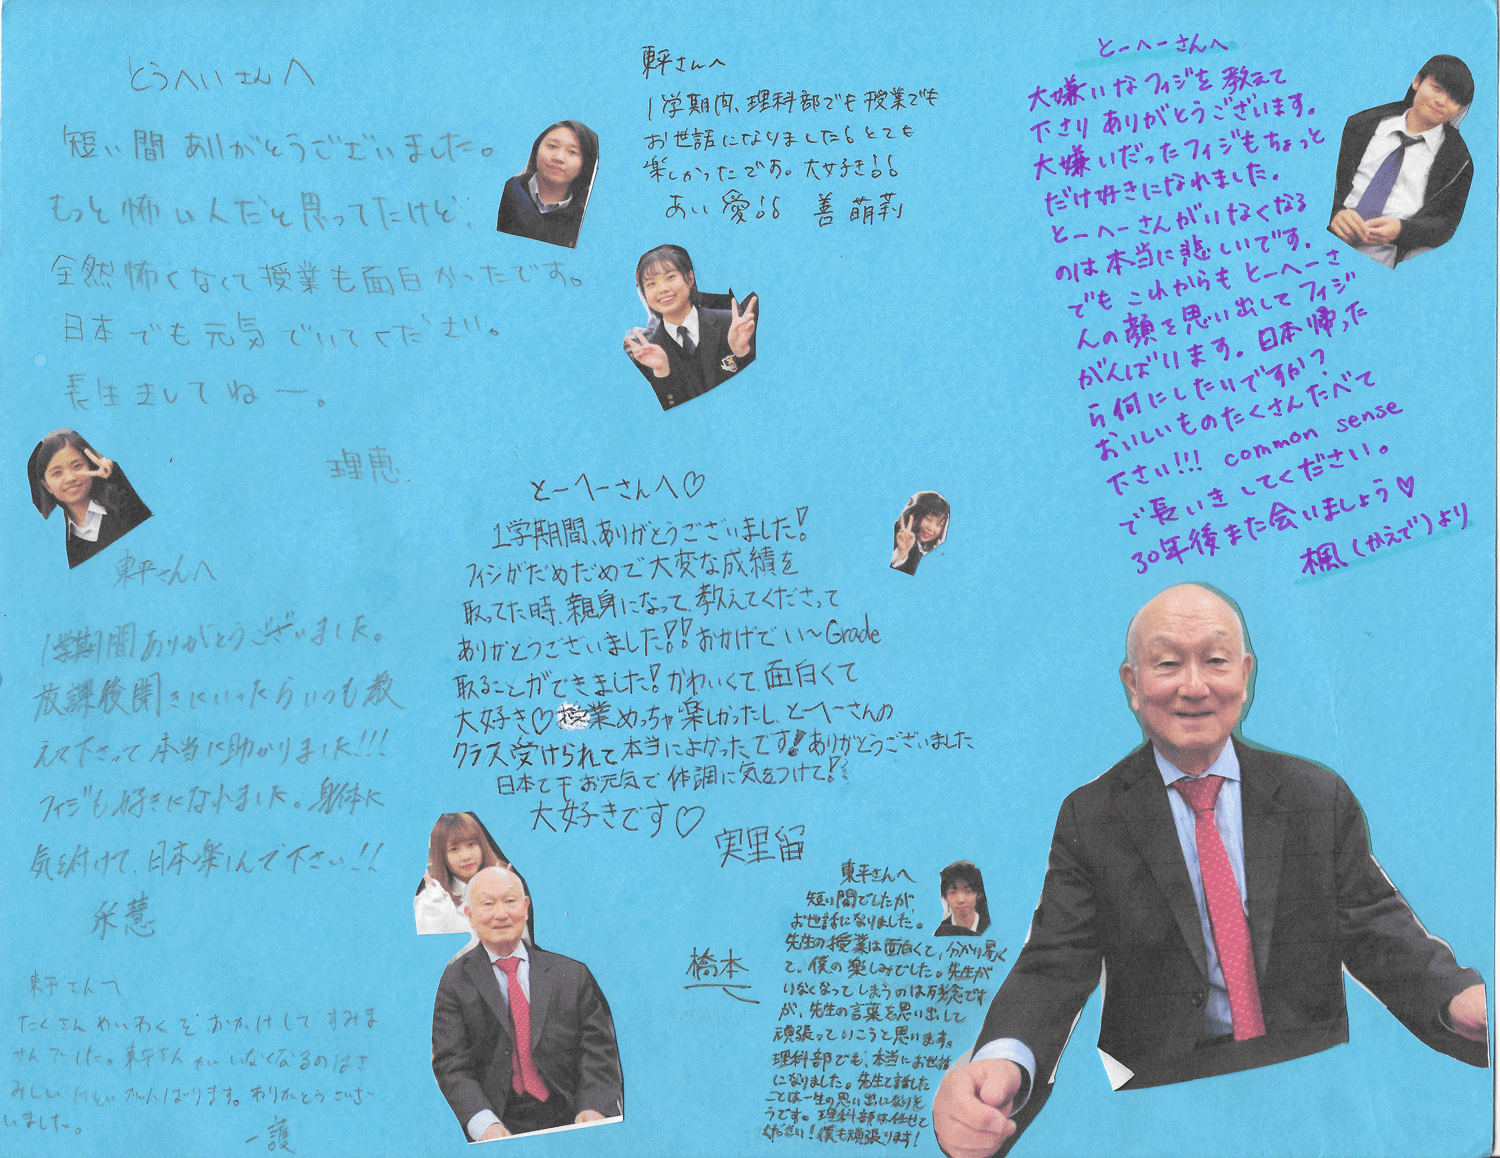 とうへいさんへ
短い間ありがとうございました。
もっと怖い人だと思ってたけど、
全然怖くなくて授業も面白かったです。
日本でも元気でいてください。
長生きしてねー。
理恵
東平さんへ
1学期内、理科部でも授業でも
お世話になりました。とても
楽しかったです。大好き!!
あい 愛!! 善 萌莉
とーへーさんへ
大嫌いなフィジを教えて
下さりありがとうございます。
大嫌いだったフィジもちょっと
だけ好きになれました。
とーへーさんがいなくなる
のは本当に悲しいです。
でもこれからもとーへーさ
んの顔を思い出してフィジ
がんばります。日本帰った
ら何にしたいですか?
おいしいものたくさんたべて
下さい!!! common sense
で長いきしてください。
30年後また会いましょう♡
楓(かえで)より
東平さんへ
1学期間ありがとうございました。
放課後聞きにいったらいつも教
えて下さって本当に助かりました!!!
フィジも好きになれました。身体に
気を付けて、日本楽しんで下さい!!
永慧
とーへーさんへ♡
1学期間、ありがとうございました!
フィジがだめだめで大変な成績を
取ってた時、親身になって教えてくださって
ありがとうございました!!おかげでい〜Grade
取ることができました!かわいくて面白くて
大好き♡授業めっちゃ楽しかったし、とーへーさんの
クラス受けられて本当によかったです!ありがとうございました
日本でもお元気で体調に気をつけて!!
大好きです♡
実里留
東平さんへ
短い間でしたが
お世話になりました。
先生の授業は面白くて、分かり易く
て、僕の楽しみでした。先生が
いなくなってしまうのは残念です
が、先生の言葉を思い出して
頑張っていこうと思います。
理科部でも、本当にお世話
になりました。先生と話した
ことは一生の思い出になりそ
うです。理科部は任せて
ください!僕も頑張ります!
橋本
東平さんへ
たくさんめいわくをおかけしてすみま
せんでした。東平さんがいなくなるのはさ
みしいけどがんばります。ありがとうござ
いました。
一護